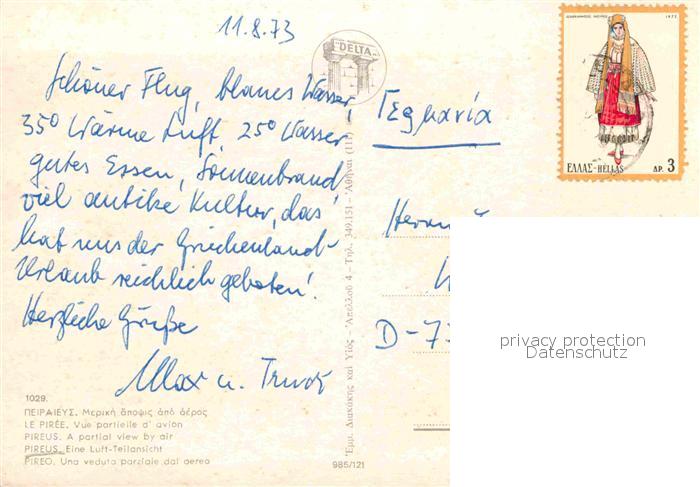 11.8.73
DELTA
Schöner Flug, blaues Wasser,
35° Wärme Luft, 25° Wasser
gutes Essen, Sonnenbrand,
viel antike Kultur, das
hat uns der Griechenland-
Urlaub reichlich geboten!
Herzliche Grüße
Max u.
Γερμανία
1973
ΕΛΛΑΣ-HELLAS ΔΡ. 3
D-77
privacy protection
Datenschutz
Ἐμμ. Διακάκης καὶ Υἱός - Ἀπέλλοῦ 4 - Τηλ. 349.151 - Ἀθῆναι (111)
1029.
ΠΕΙΡΑΙΕΥΣ. Μερική ἄποψις ἀπό ἀέρος
LE PIRÉE. Vue partielle d' avion
PIREUS. A partial view by air
PIREUS. Eine Luft-Teilansicht
PIREO. Una veduta parziale dal aereo
985/121